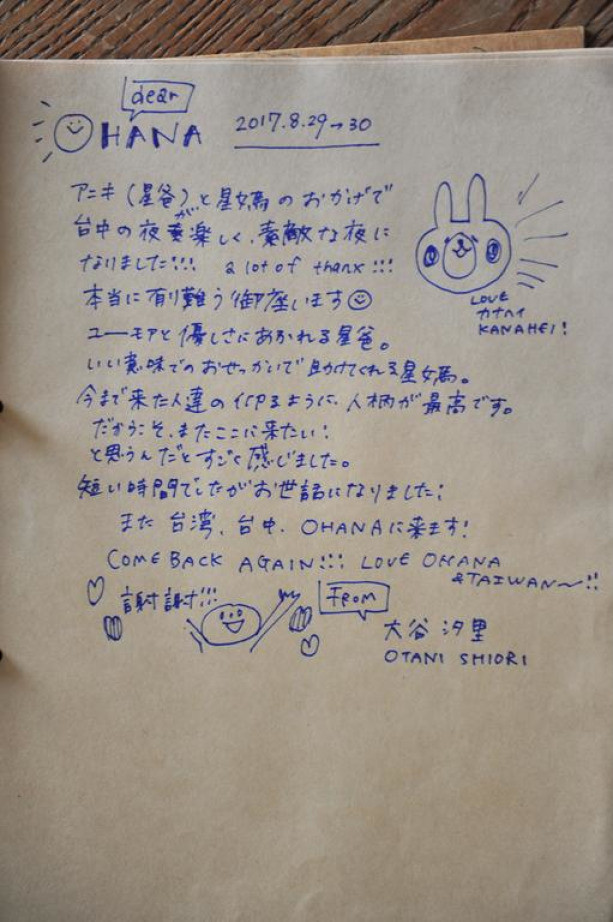 dear
OHANA 2017.8.29→30
アニキ(星爸)と星媽のおかげで
台中の夜が楽しく、素敵な夜に
なりました!!! a lot of thanx!!!
本当に有難う御座います
ユーモアと優しさにあふれる星爸。
いい意味でのおせっかいで助けてくれる星媽。
今まで来た人達の ように、人柄が最高です。
だからこそ、またここに来たい!
と思うんだとすごく感じました。
短い時間でしたがお世話になりました!
また台湾、台中、OHANAに来ます!
COME BACK AGAIN!!! LOVE OHANA
&TAIWAN〜!!
謝謝!!!
From
大谷 汐里
OTANI SHIORI
LOVE
カナヘイ
KANAHEI!